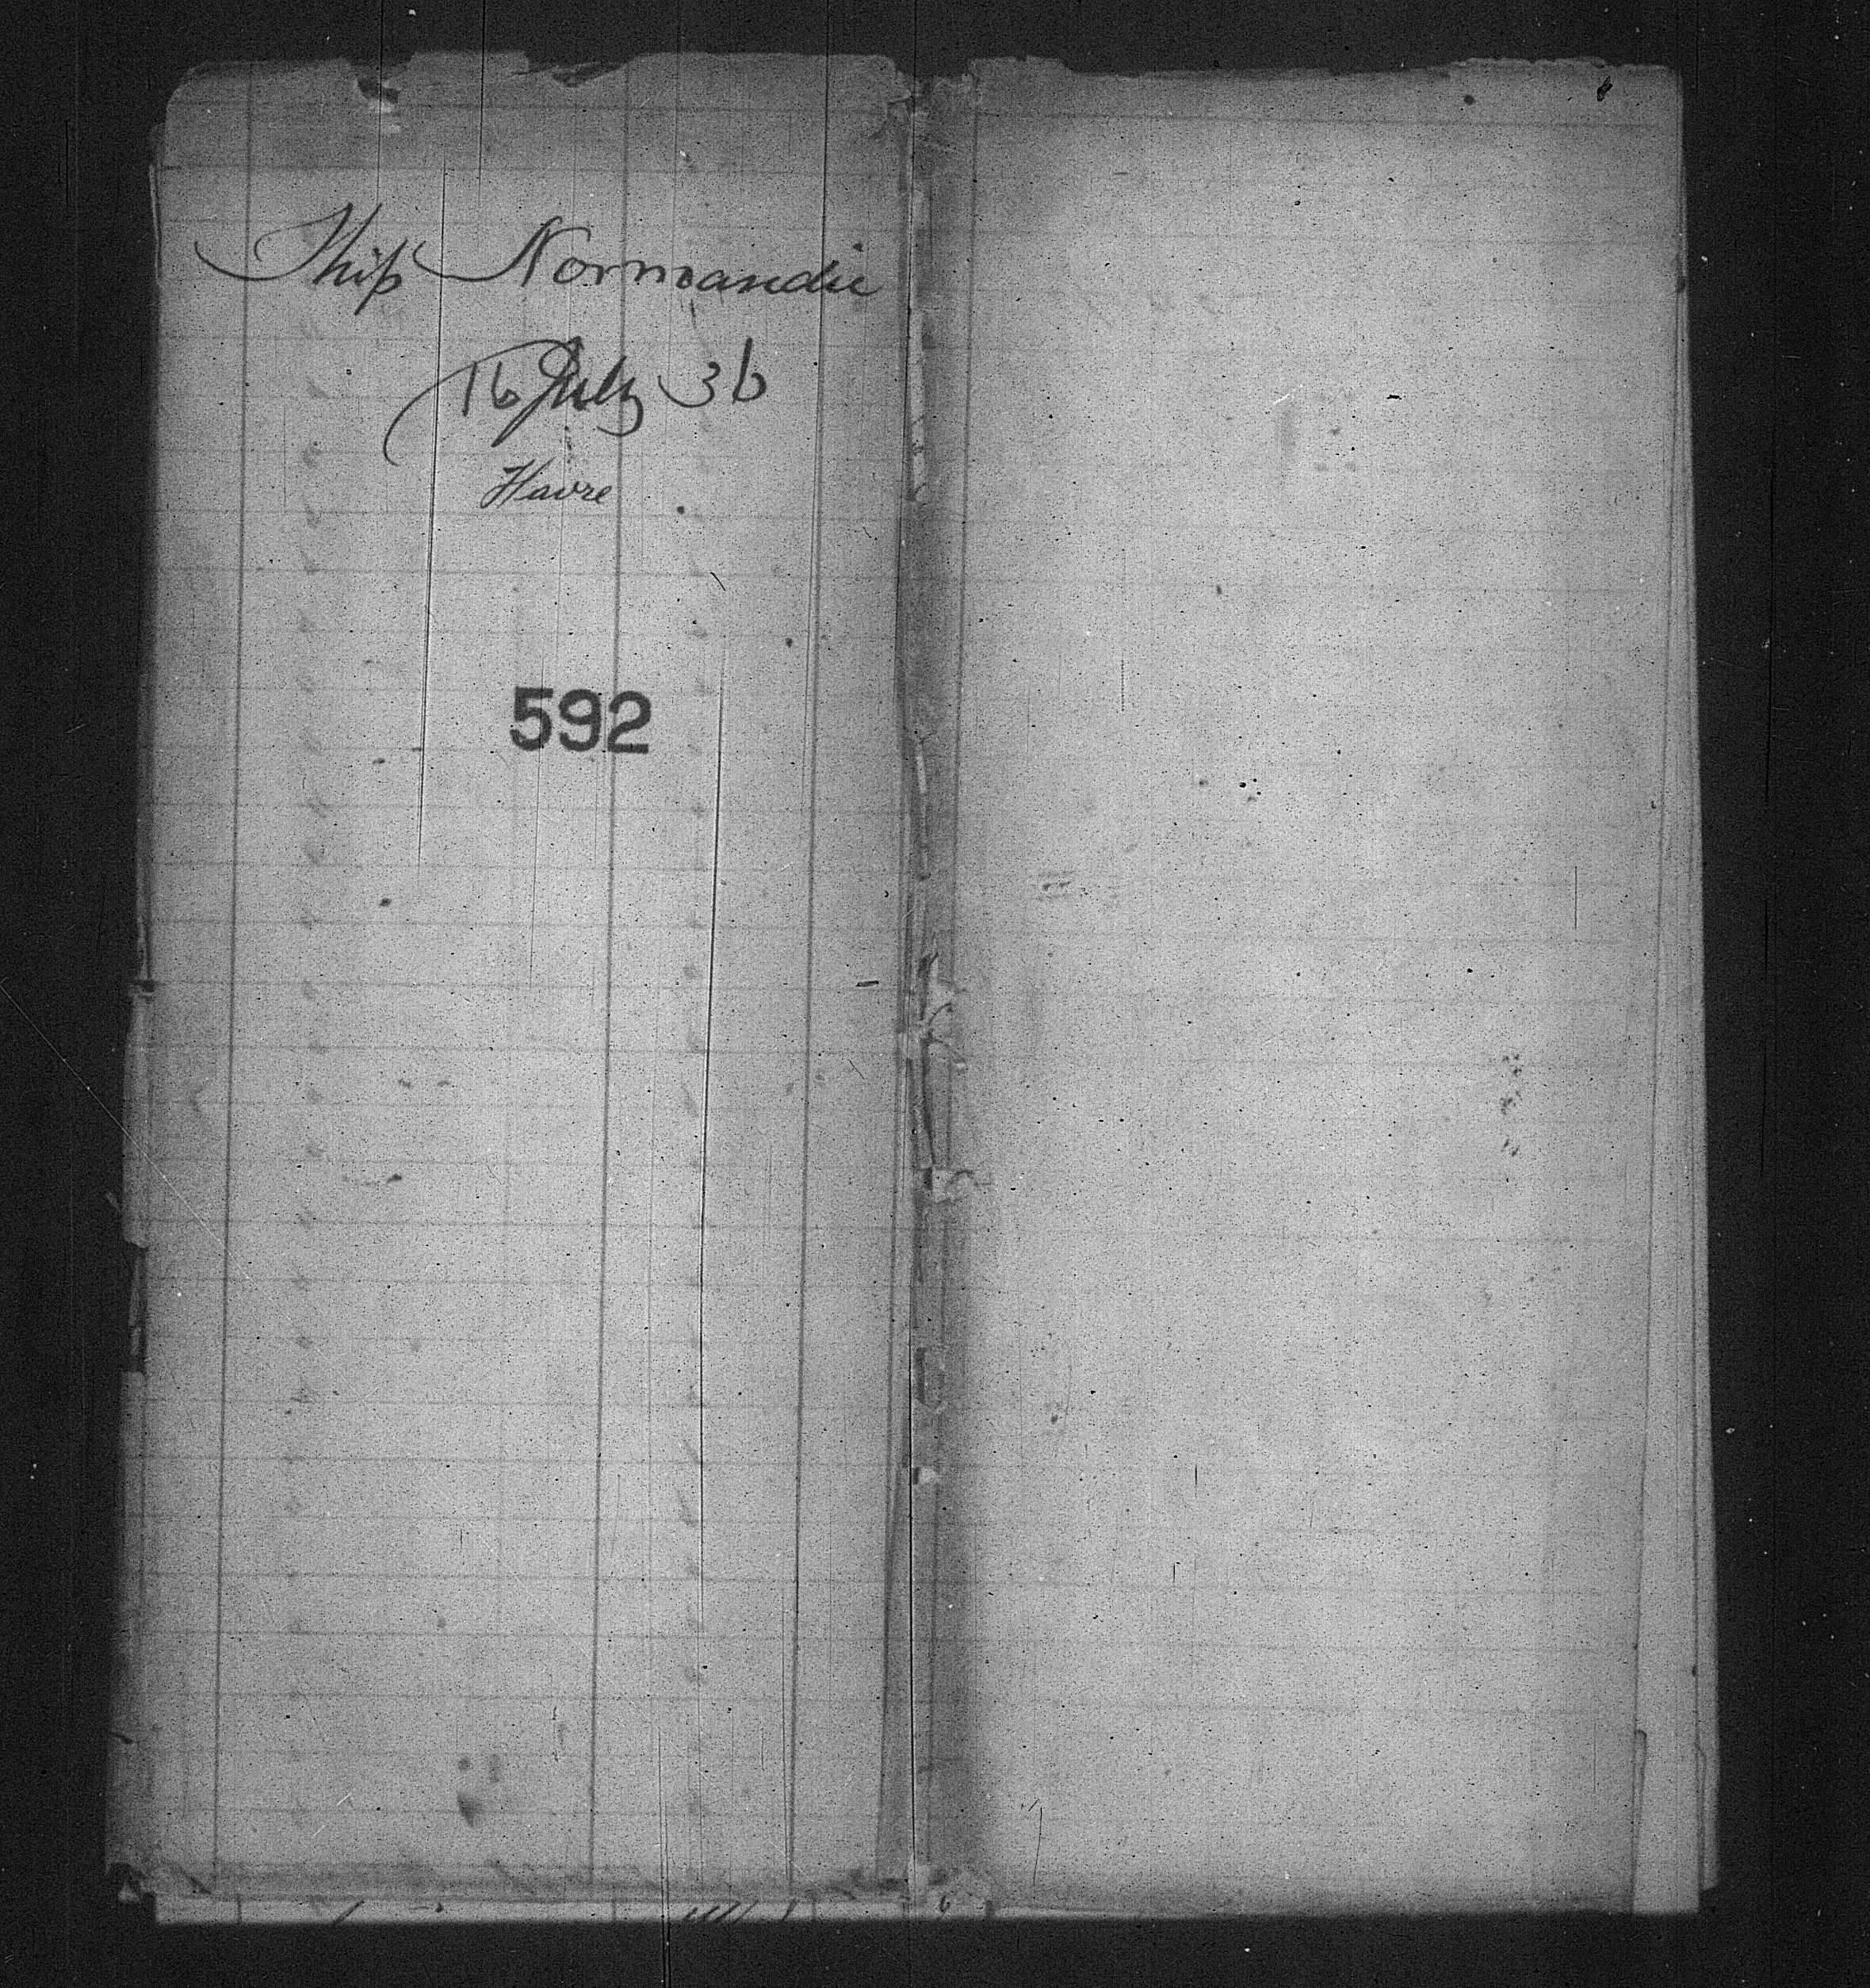 Ship Normandie
16 July 36
Havre
592